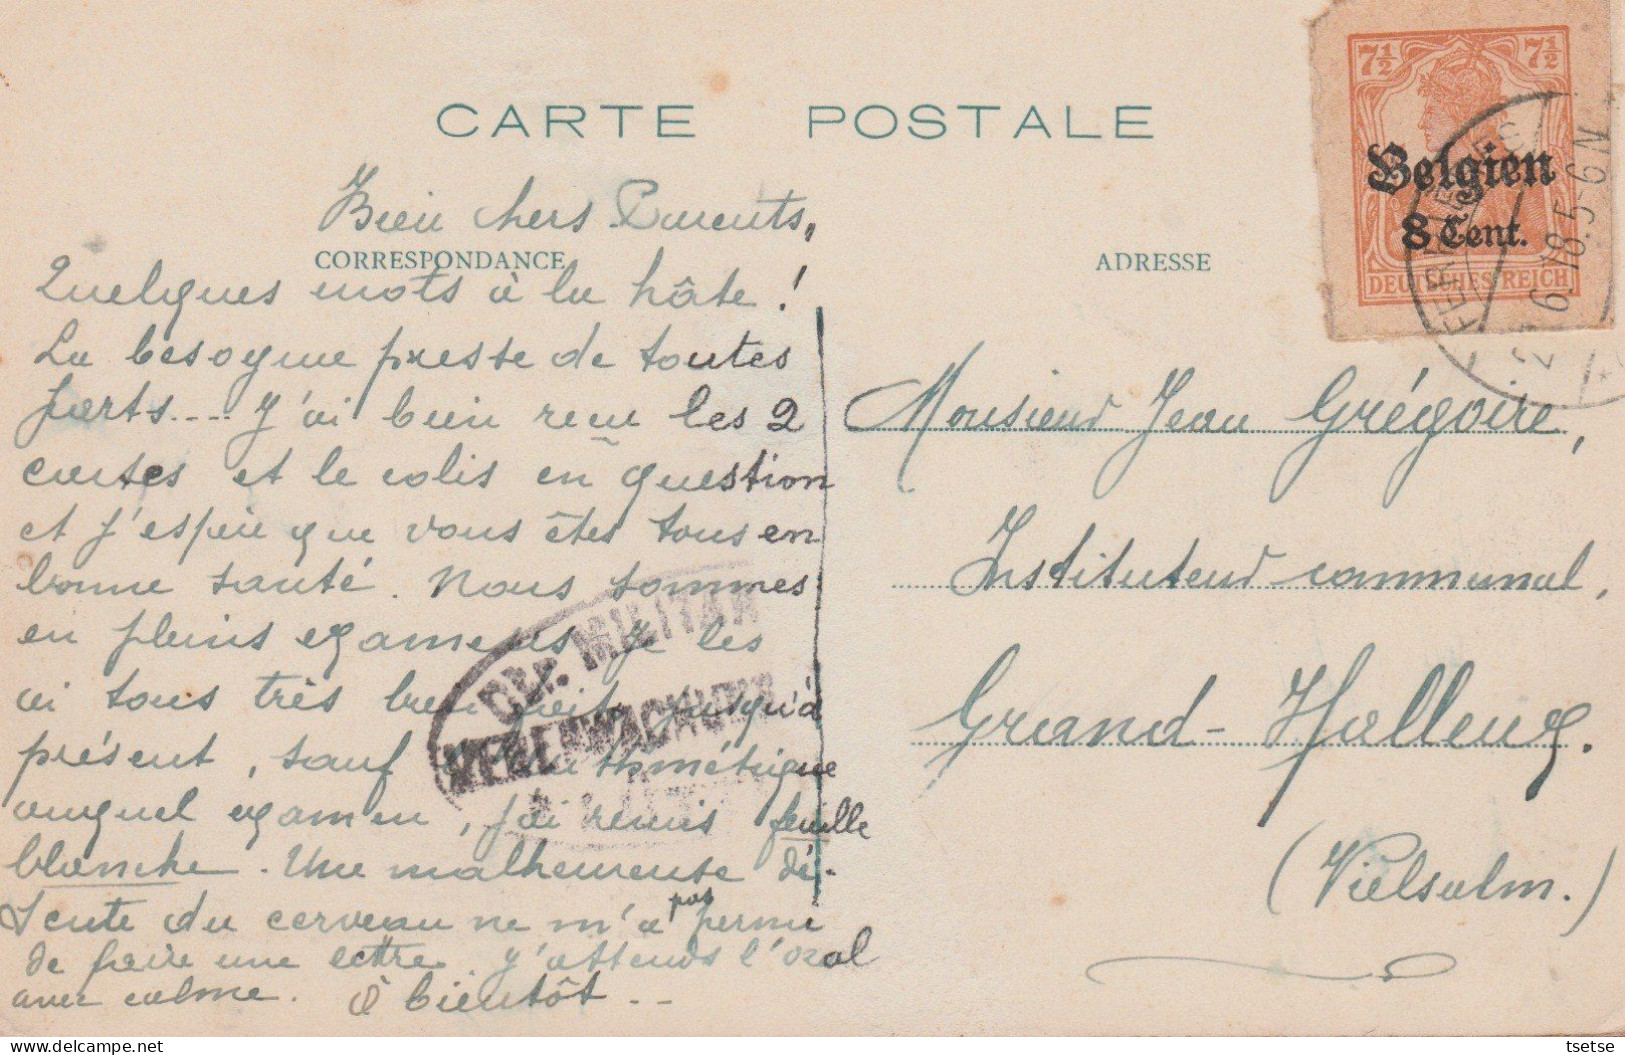 CARTE POSTALE
7½ 7½
Belgien
8 Cent.
DEUTSCHES REICH
6.18.5-6N
CORRESPONDANCE
ADRESSE
Bien chers Parents,
Quelques mots à la hâte !
La besogne presse de toutes
parts.... J'ai bien reçu les 2
cartes et le colis en question
et j'espère que vous êtes tous en
bonne santé. Nous sommes
en pleins examens je les
ai tous très bien faits jusqu'à
présent, sauf l'arithmétique
auquel examen, j'ai remis feuille
blanche. Une malheureuse dé-
tente du cerveau ne m'a pas permis
de faire une lettre. J'attends l'oral
avec calme. à bientôt ..
MILITÄR
Monsieur Jean Grégoire,
Instituteur communal,
Grand-Halleux.
(Vielsalm.)
tsetse
delcampe.net